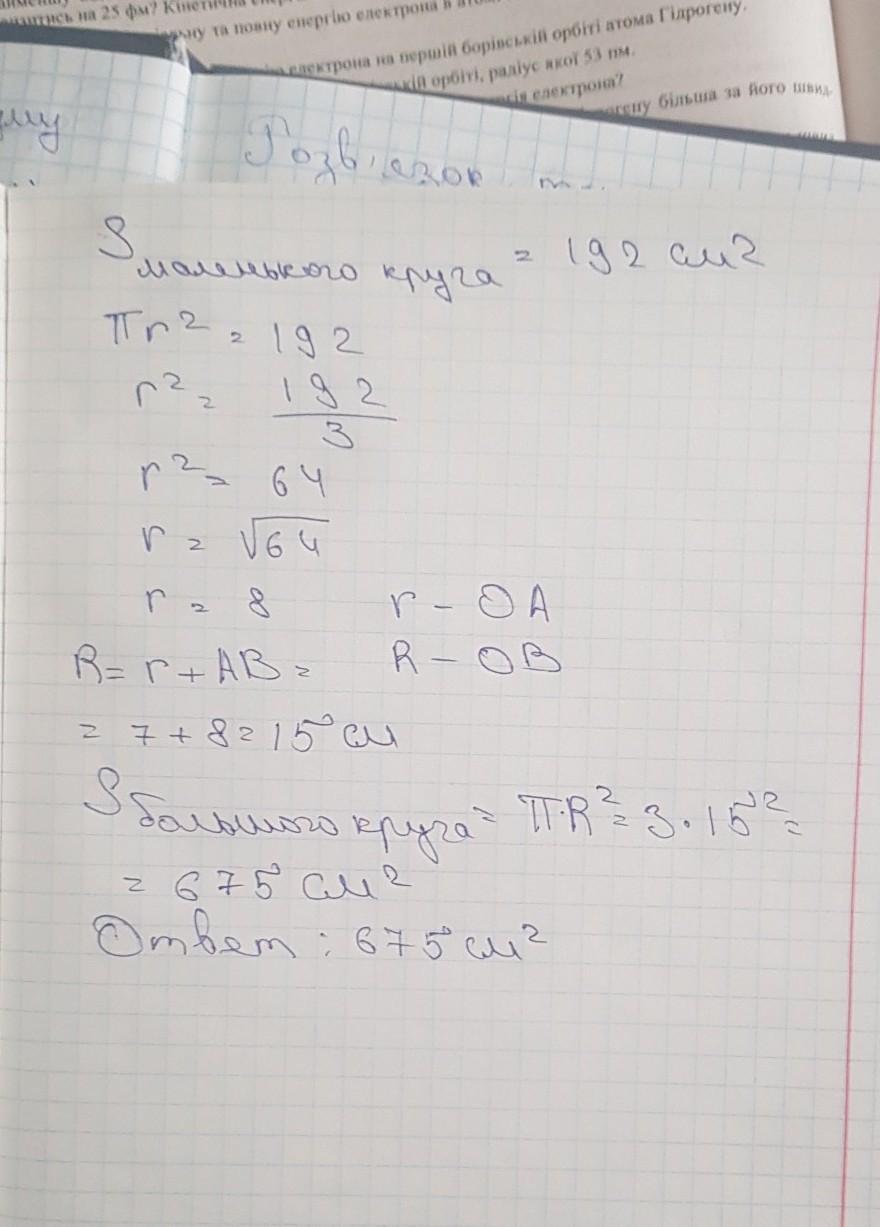 на 25 фм? Кінетична
ну та повну енергію електрона в
електрона на першій борівській орбіті атома Гідрогену.
кій орбіті, радіус якої 53 пм.
електрона?
більша за його швид-
Розв'язок
S маленького круга = 192 см2
πr² = 192
r² = 192/3
r² = 64
r = √64
r = 8 r - OA
R = r + AB = R - OB
= 7 + 8 = 15 см
S большого круга = π·R² = 3·15² =
= 675 см²
Ответ: 675 см²